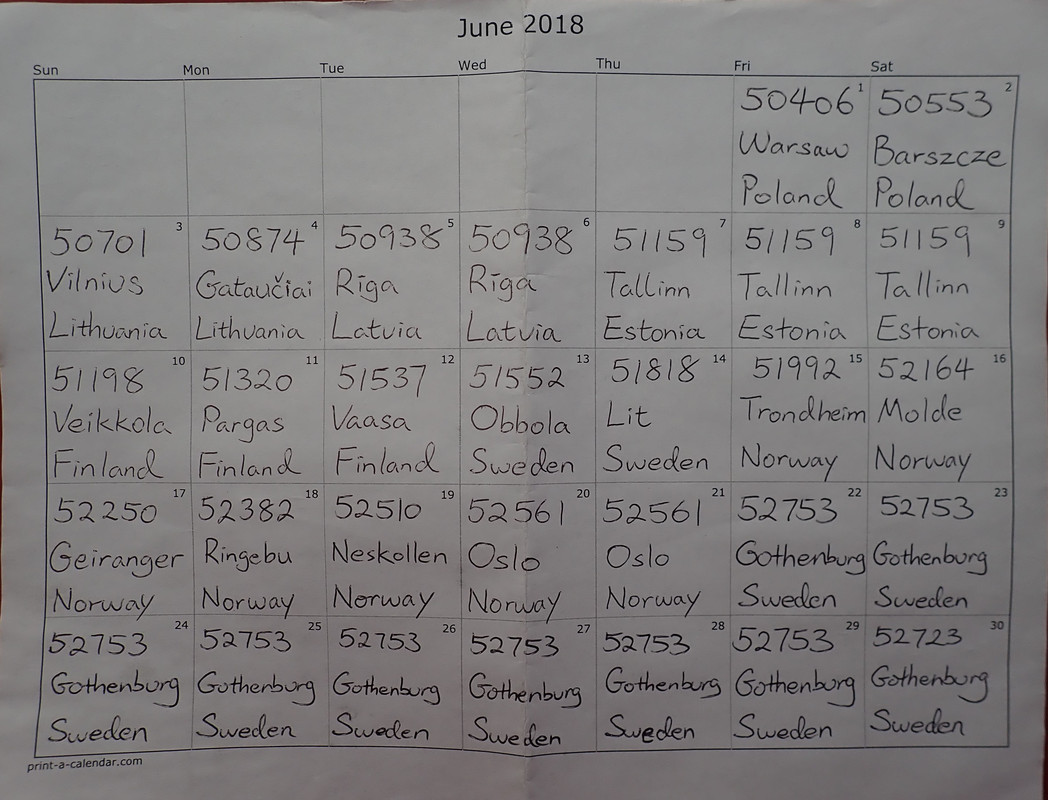 June 2018
Sun Mon Tue Wed Thu Fri Sat
1
50406
Warsaw
Poland
2
50553
Barszcze
Poland
3
50701
Vilnius
Lithuania
4
50874
Gataučiai
Lithuania
5
50938
Rīga
Latvia
6
50938
Rīga
Latvia
7
51159
Tallinn
Estonia
8
51159
Tallinn
Estonia
9
51159
Tallinn
Estonia
10
51198
Veikkola
Finland
11
51320
Pargas
Finland
12
51537
Vaasa
Finland
13
51552
Obbola
Sweden
14
51818
Lit
Sweden
15
51992
Trondheim
Norway
16
52164
Molde
Norway
17
52250
Geiranger
Norway
18
52382
Ringebu
Norway
19
52510
Neskollen
Norway
20
52561
Oslo
Norway
21
52561
Oslo
Norway
22
52753
Gothenburg
Sweden
23
52753
Gothenburg
Sweden
24
52753
Gothenburg
Sweden
25
52753
Gothenburg
Sweden
26
52753
Gothenburg
Sweden
27
52753
Gothenburg
Sweden
28
52753
Gothenburg
Sweden
29
52753
Gothenburg
Sweden
30
52723
Gothenburg
Sweden
print-a-calendar.com